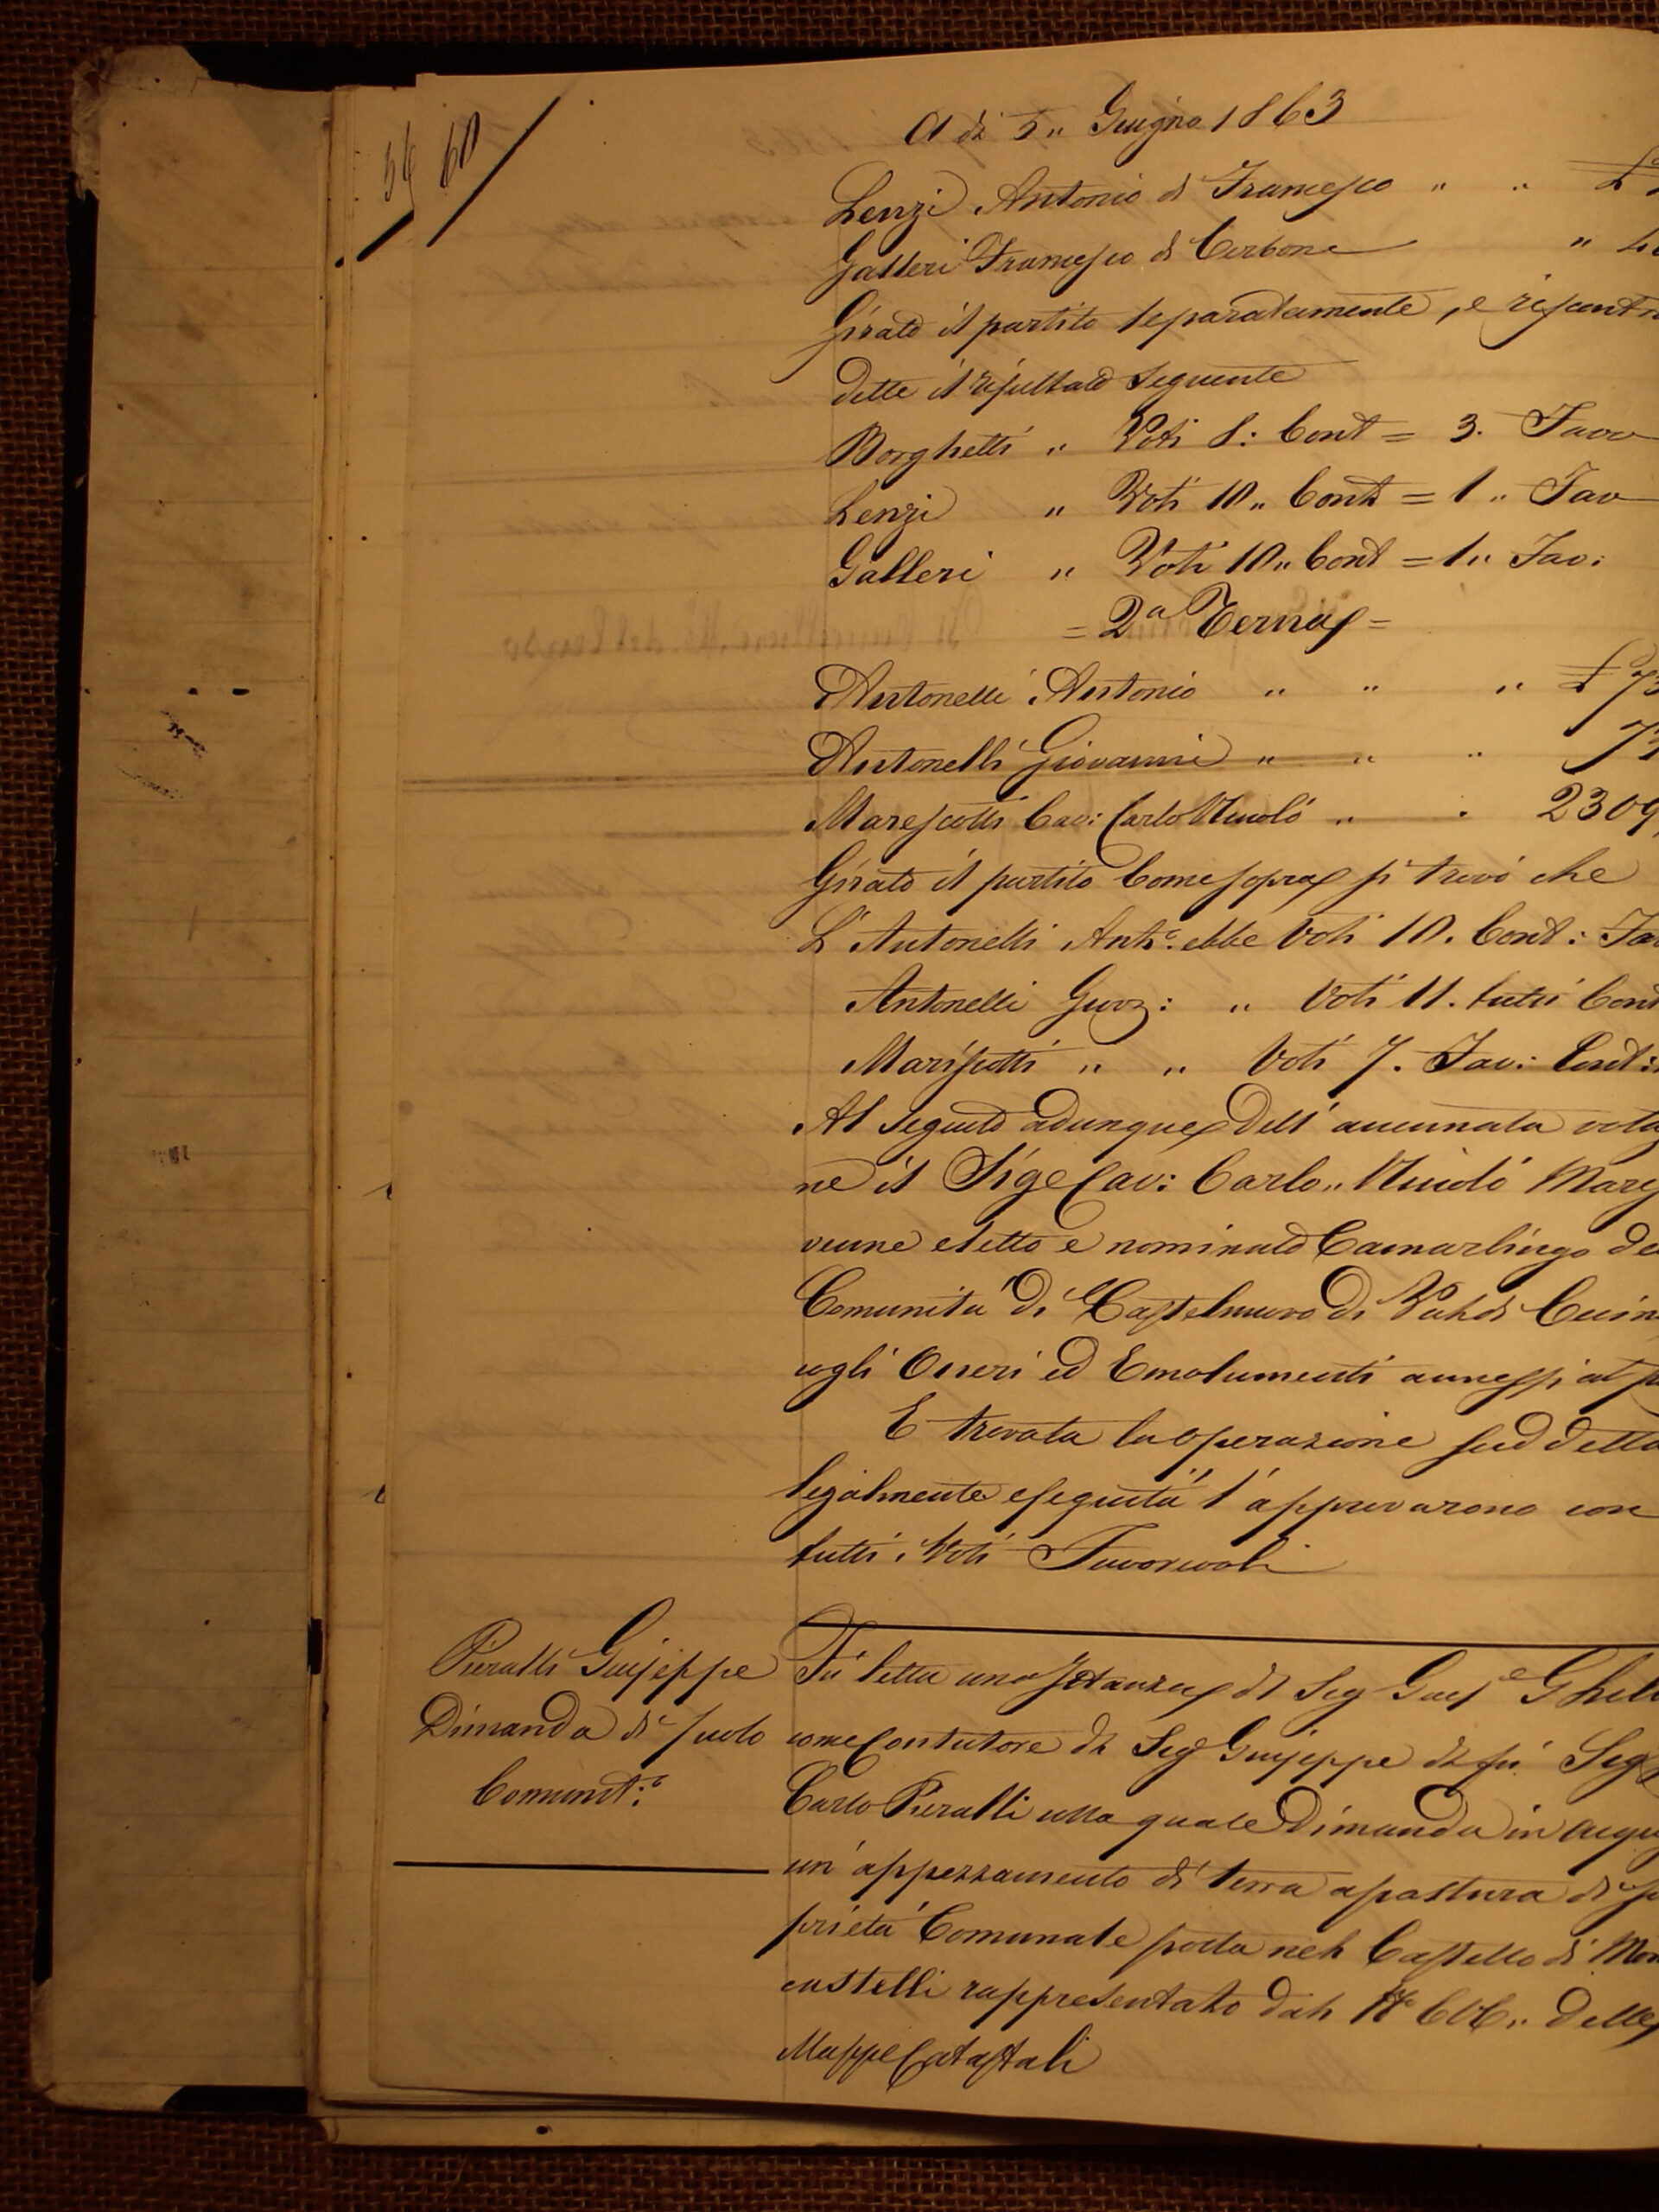 56 60
A di 5,, Giugno 1863
Lenzi Antonio di Francesco " " £
Galleri Francesco di Cerbone "
Girato il partito separatamente, e riscontr
dette il resultato seguente
Borghetti " Voti 8: Cont = 3. Favo
Lenzi " Voti 10,, Cont = 1,, Fav
Galleri " Voti 10,, Cont = 1,, Fav:
= 2a Terna =
Antonelli Antonio " " " £ 73
Antonelli Giovanni " " " 73
Marescotti Cav: Carlo Niccolò " " 2309
Girato il partito Come sopra si trovò che
L'Antonelli Anto: ebbe Voti 10. Cont: Fav
Antonelli Giov: " Voti 11. tutti Cont
Mariscotti " " Voti 7. Fav: Cont:
Al seguito adunque dell'accennata vota
ne il Sige Cav: Carlo,, Niccolò Mares
venne eletto e nominato Camarlingo de
Comunità di Castelnuovo di Val di Cecin
cogli Oneri ed Emolumenti annessi al p
E trovata la operazione suddetta
legalmente eseguita l'approvarono con
tutti i Voti Favorevoli
Pieralli Giuseppe
Dimanda di suolo
Comunit:o
Fu letta una Istanza di Sig Giuse Ghil
come Contutore di Sig Giuseppe di fù Sig
Carlo Pieralli colla quale Dimanda in acqu
un' appezzamento di terra a pastura di p
prietà Comunale posta nel Castello di Mon
castelli rappresentato dal No 606,, delle
Mappe Catastali